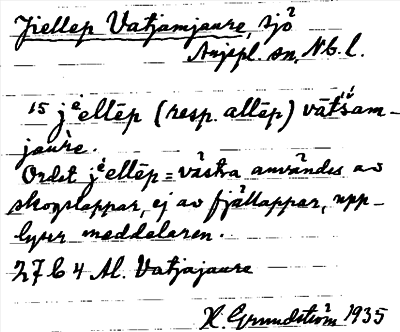 Jiellep Vatjamjaure, sjö
Arjepl. sn, Nb. l.
15 jiellēp (resp. allēp) vàtšam-
jaurē.
Ordet jiellēp = västra användes av
skogslappar, ej av fjällappar, upp-
lyser meddelaren.
27 C 4 Al. Vatjajaure
H. Grundström 1935